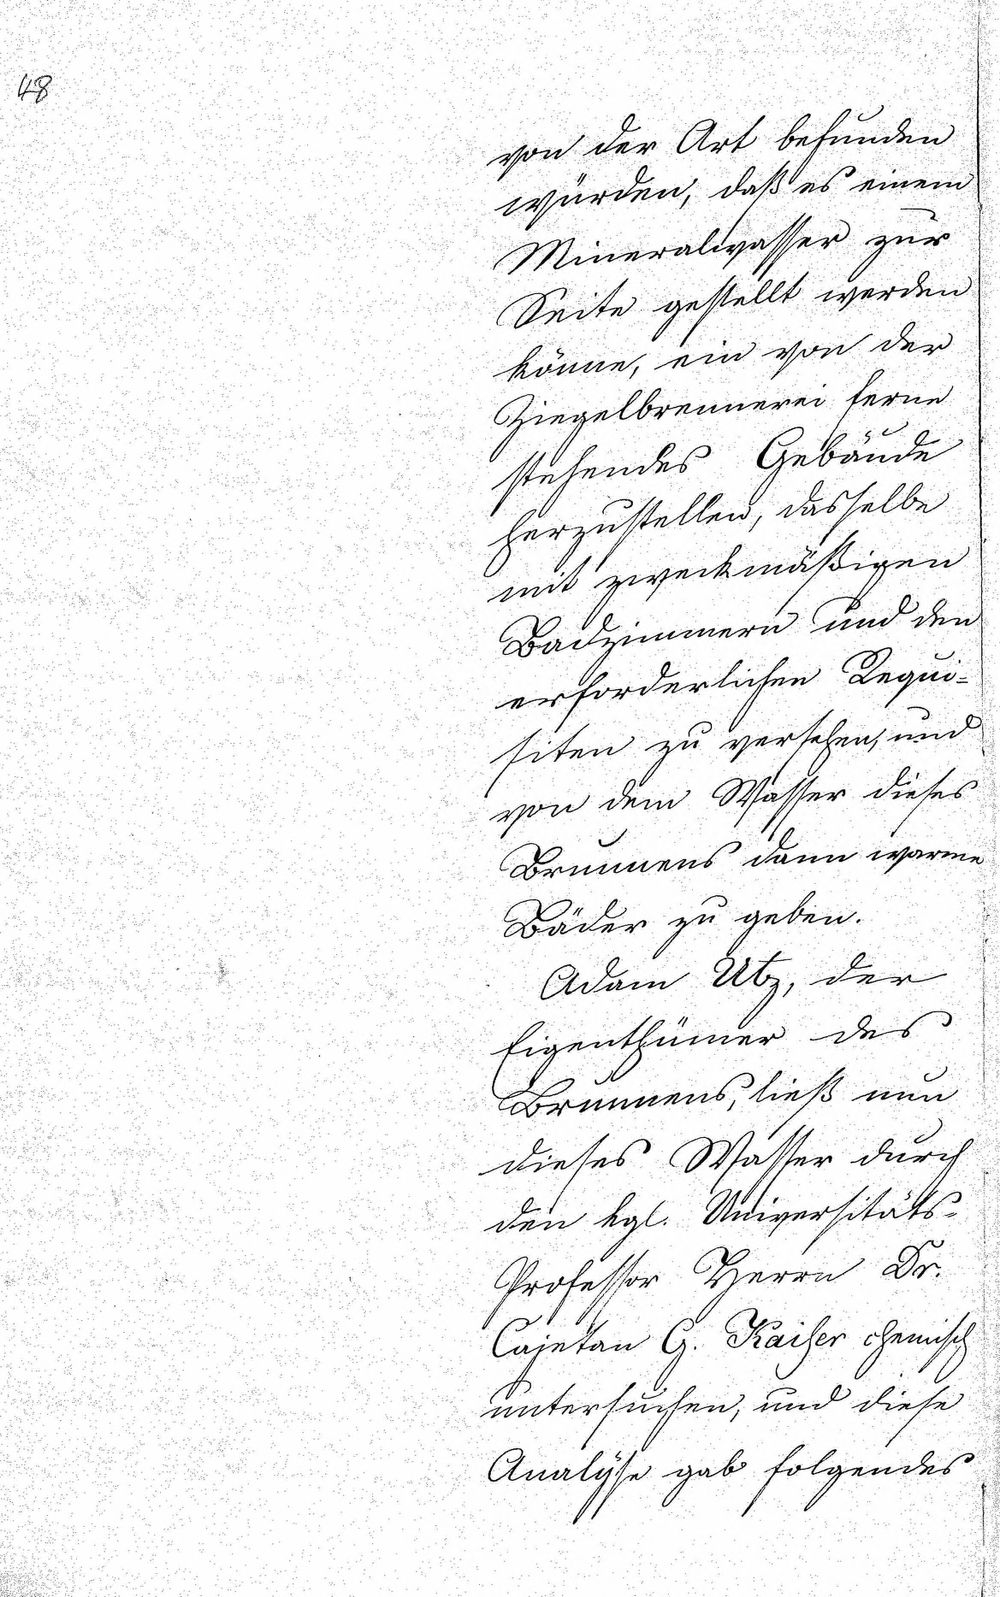 48
von der Art befunden
würden, daß es einem
Mineralwasser zur
Seite gestellt werden
könne, ein von der
Ziegelbrennerei ferne
stehendes Gebäude
herzustellen, dasselbe
mit zweckmäßigen
Badzimmern und den
erforderlichen Requi-
siten zu versehen, und
von dem Wasser dieses
Brunnens dann warme
Bäder zu geben.
Adam Utz, der
Eigenthümer des
Brunnens, ließ nun
dieses Wasser durch
den kgl. Universitäts-
Professor Herrn Dr.
Cajetan G. Kaiser chemisch
untersuchen, und diese
Analÿse gab folgendes